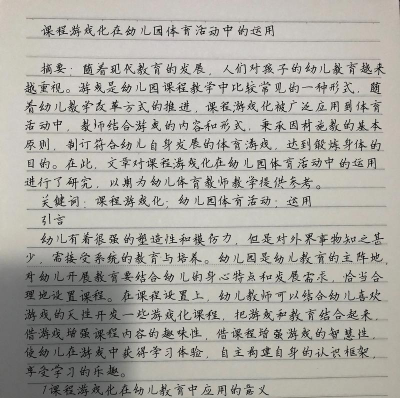 课程游戏化在幼儿园体育活动中的运用
摘要：随着现代教育的发展，人们对孩子的幼儿教育越来
越重视。游戏是幼儿园课程教学中比较常见的一种形式，随
着幼儿教学改革方式的推进，课程游戏化被广泛应用到体育
活动中，教师结合游戏的内容和形式，秉承因材施教的基本
原则，制订符合幼儿自身发展的体育游戏，达到锻炼身体的
目的。在此，文章对课程游戏化在幼儿园体育活动中的运用
进行了研究，以期为幼儿体育教师教学提供参考。
关键词：课程游戏化；幼儿园体育活动；运用
引言
幼儿有着很强的塑造性和模仿力，但是对外界事物知之甚
少，需接受系统的教育与培养。幼儿园是幼儿教育的主阵地，
对幼儿开展教育要结合幼儿的身心特点和发展需求，恰当合
理地设置课程。在课程设置上，幼儿教师可以结合幼儿喜欢
游戏的天性开发一些游戏化课程，把游戏和教育结合起来，
借游戏增强课程内容的趣味性，借课程增强游戏的智慧性，
使幼儿在游戏中获得学习体验，自主构建自身的认识框架，
享受学习的乐趣。
1课程游戏化在幼儿教育中应用的意义